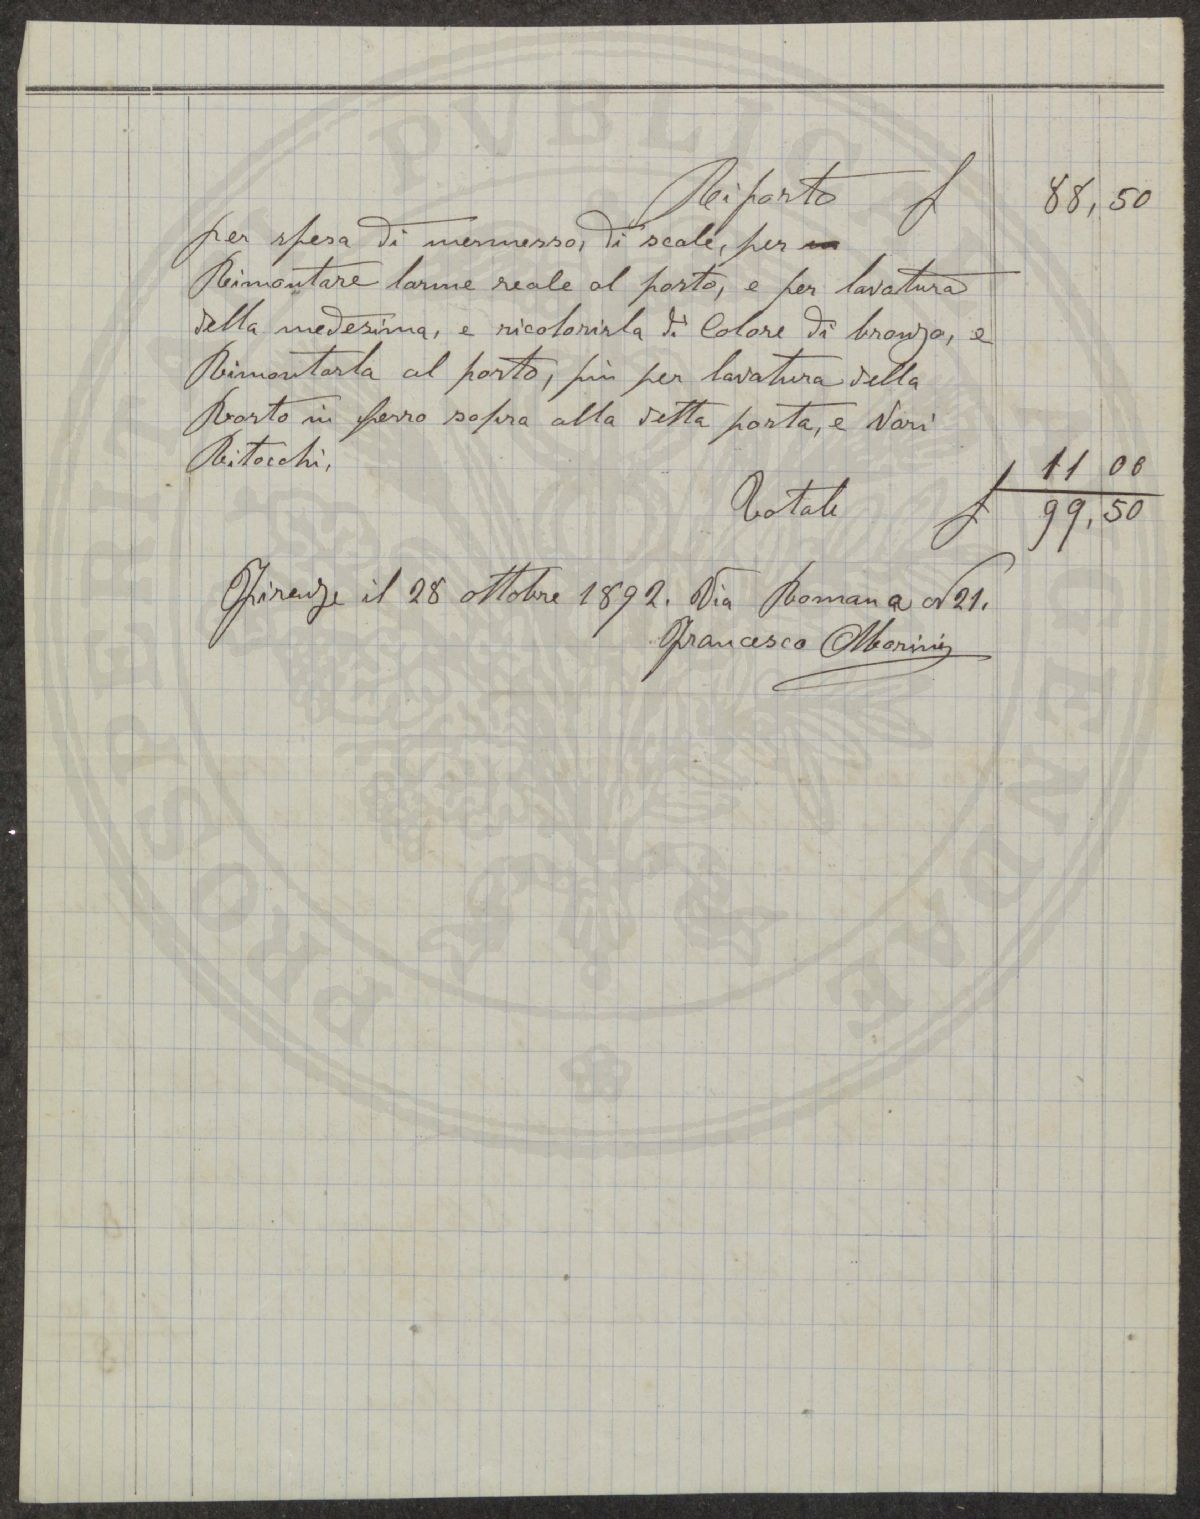 Riporto £ 88,50
per spesa di mermesso, di scale, per
Rimontare larme reale al posto, e per lavatura
della medesima, e ricolorirla di Colore di bronzo, e
Rimontarla al posto, più per lavatura della
Rosto in ferro sopra alla detta porta, e Vari
Ritocchi, £ 11 00
Totale £ 99,50
Firenze il 28 ottobre 1892. Via Romana N 21.
Francesco Morini
PROSPERITATI PUBLICAE AUGENDAE